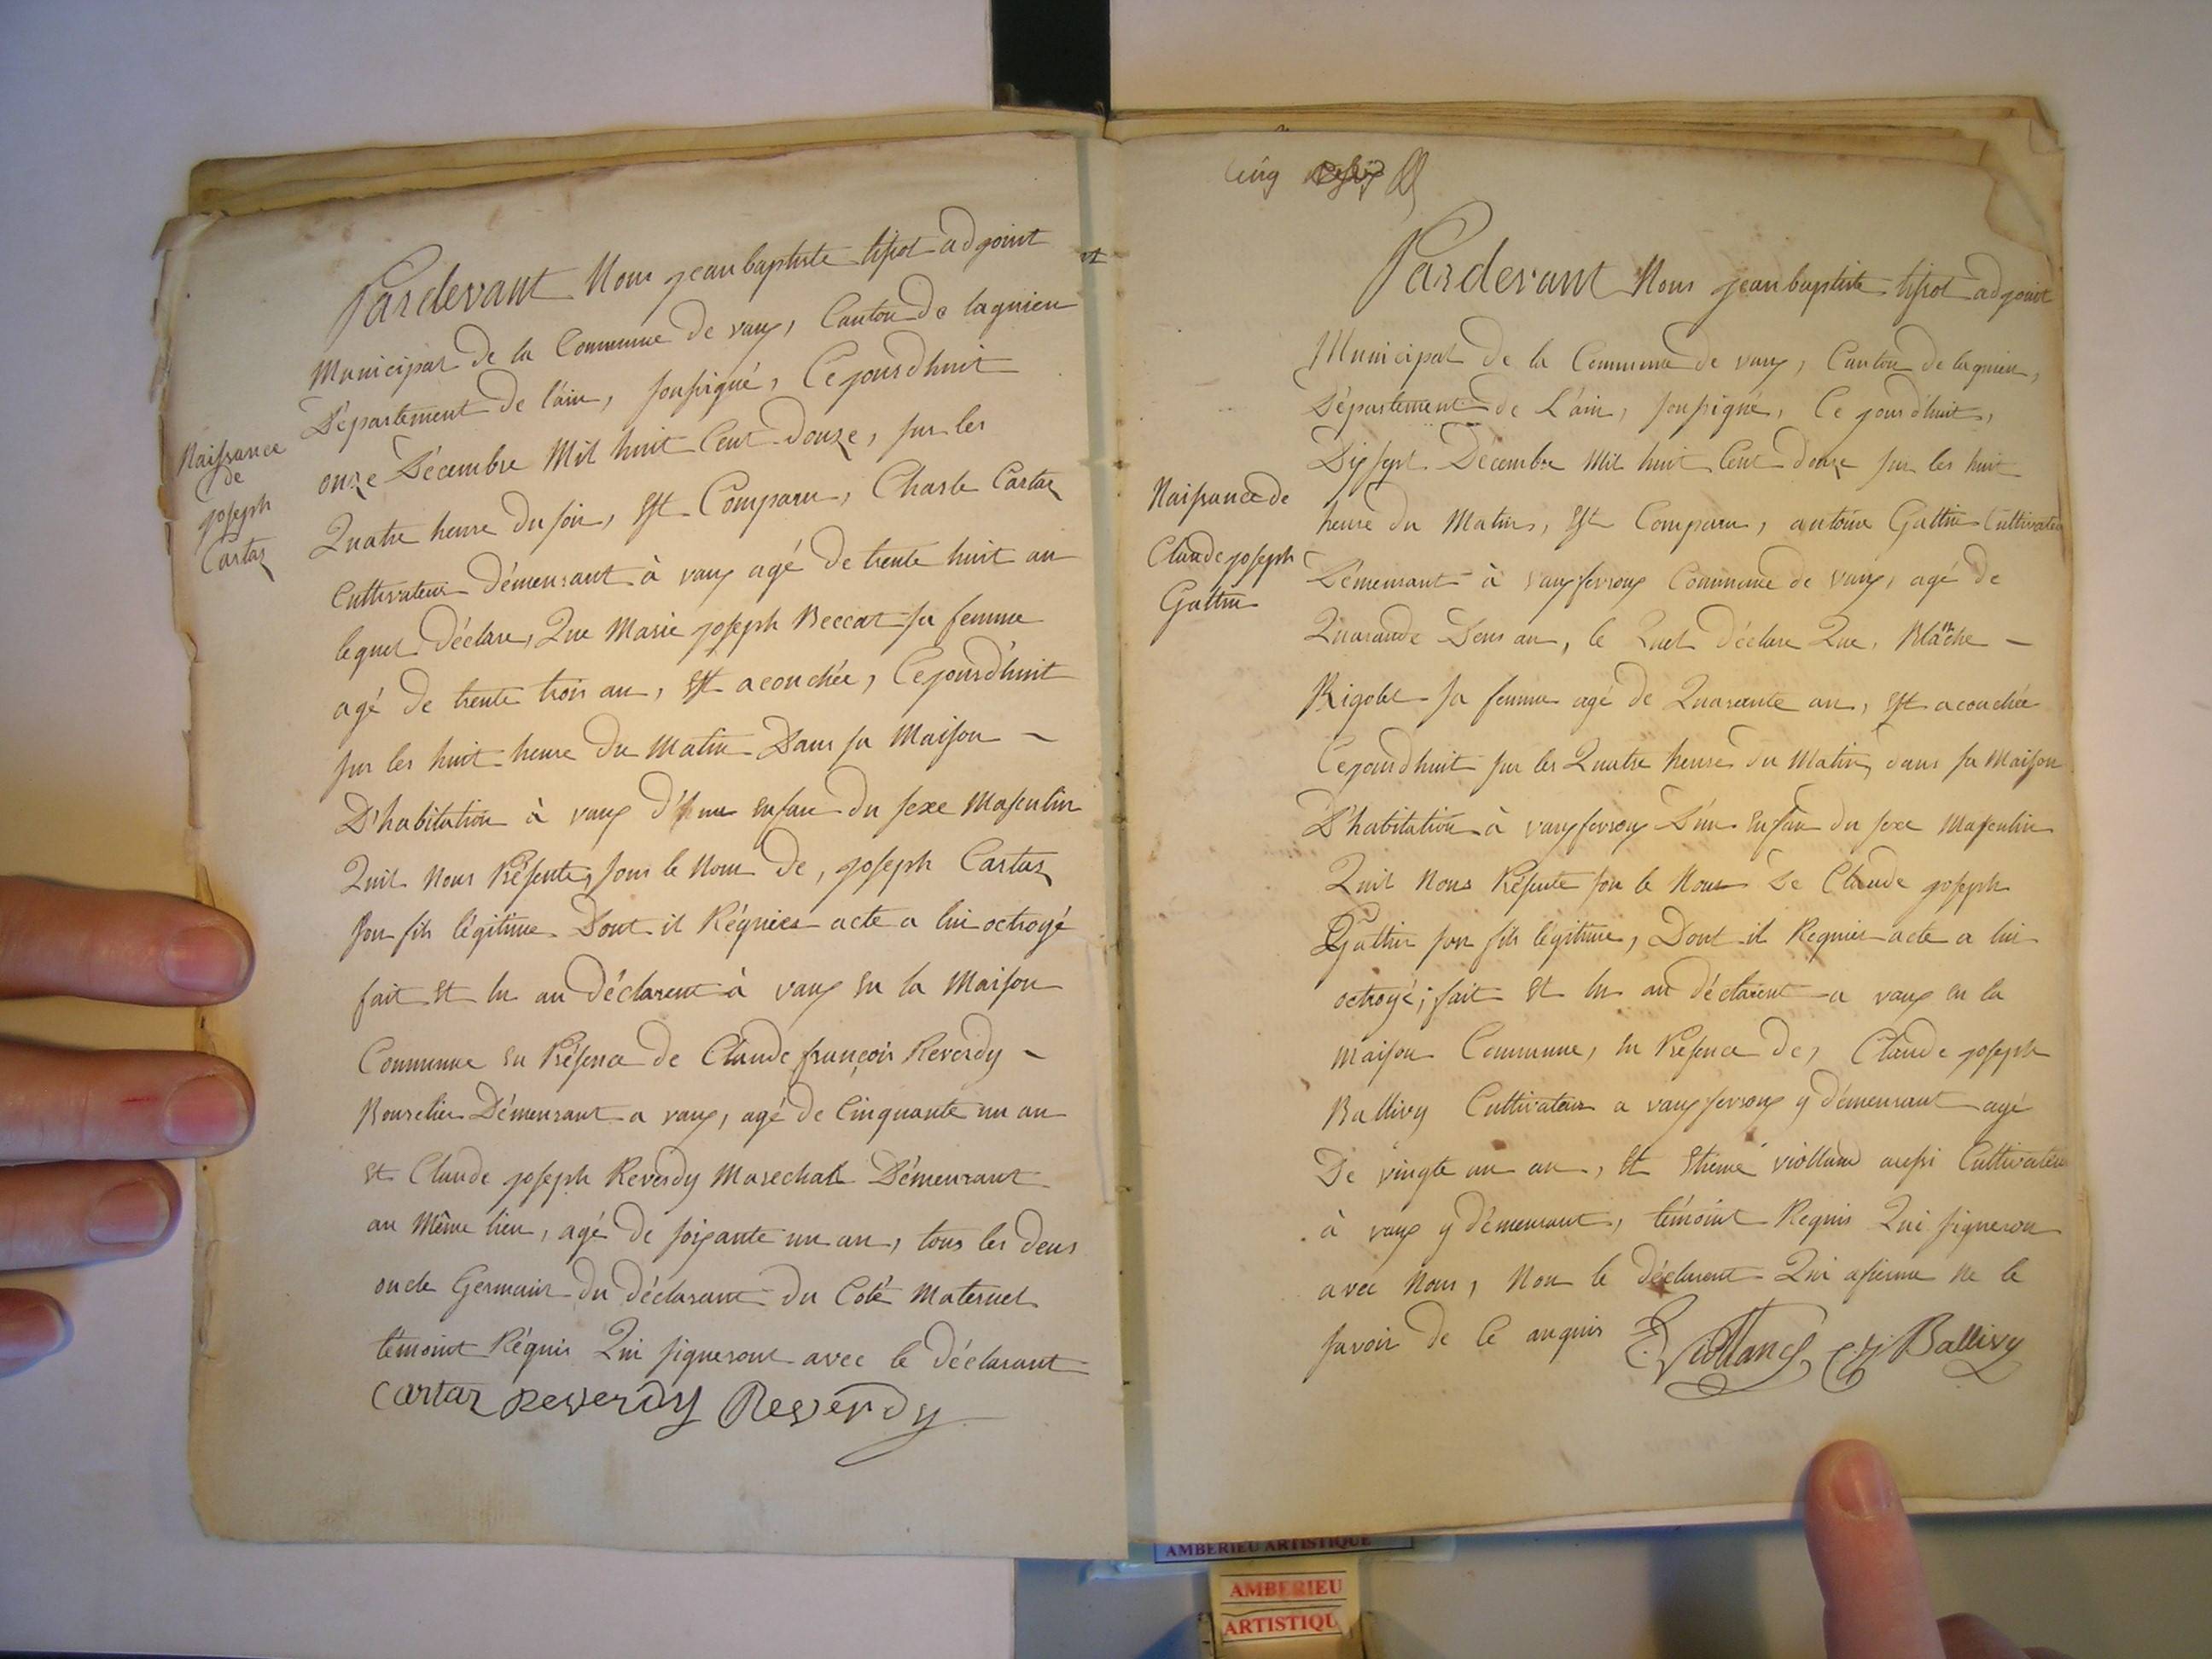 Naissance
de
joseph
Cartaz
Pardevant Nous jean baptiste tissot adjoint
Municipal de la Commune de vaux, Canton de lagnieu
Département de l'ain, soussigné, Cejourdhuit
onze Décembre Mil huit Cent douze, sur les
Quatre heure du soir, Est Comparu, Charle Cartaz
Cultivateur Démeurant à vaux agé de trente huit an
lequel Déclare, Que Marie joseph Beccat sa femme
agé de trente trois an, Est acouchée, Cejourd'huit
sur les huit heure du Matin Dans sa Maison -
D'habitation à vaux d' un enfan du sexe Masculin
Quil Nous Présente, sous le Nom de, joseph Cartaz
son fils légitime Dont il Réquier acte a lui octroyé
fait Et lu au Déclarent à vaux En la Maison
Commune En Présence de Claude françois Reverdy -
Bourelier Démeurant a vaux, agé de Cinquante un an
Et Claude joseph Reverdy Marechal Démeurant
au Même lieu, agé de soixante un an, tous les deux
oncle Germain du déclarant du Coté Maternel
témoint Réquis Qui signeront avec le déclarant
Cartaz Reverdy Reverdy
Cinq
Naissance de
Claude joseph
Guttin
Pardevant Nous jean baptiste tissot adjoint
Municipal de la Commune de vaux, Canton de lagnieu,
Département de L'ain, soussigné, Ce jourd'huit,
Dix sept Décembre Mil huit Cent douze sur les huit
heure du Matin, Est Comparu, antoine Guttin Cultivateur
Démeurant à vaux fevroux Commune de vaux, agé de
Quarande Deux an, le Quel déclare Que, Blanche -
Rigolet sa femme agé de Quarente an, Est acouchée
Cejourdhuit sur les Quatre heure du Matin, dans sa Maison
D'habitation à vaux fevroux D'un Enfan du sexe Masculin
Quil Nous Présente sou le Nom De Claude joseph
Guttin son fils légitime, Dont il Requier acte a lui
octroyé; fait Et lu au déclarent a vaux en la
maison Commune, En Présence de, Claude joseph
Ballivy Cultivateur a vaux fevroux y démeurant agé
De vingte un an, Et Etiene violland aussi Cultivateur
à vaux y démeurant, témoint Requis Qui signeron
avec Nous, Non le déclarent Qui afirme ne le
savoir de Ce anquis E Violland C J Ballivy
AMBERIEU ARTISTIQUE
AMBERIEU
ARTISTIQU